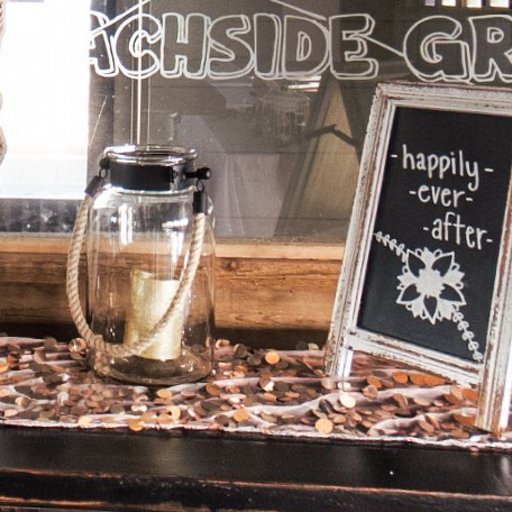 ACHSIDE GR
-happily-
-ever-
-after-